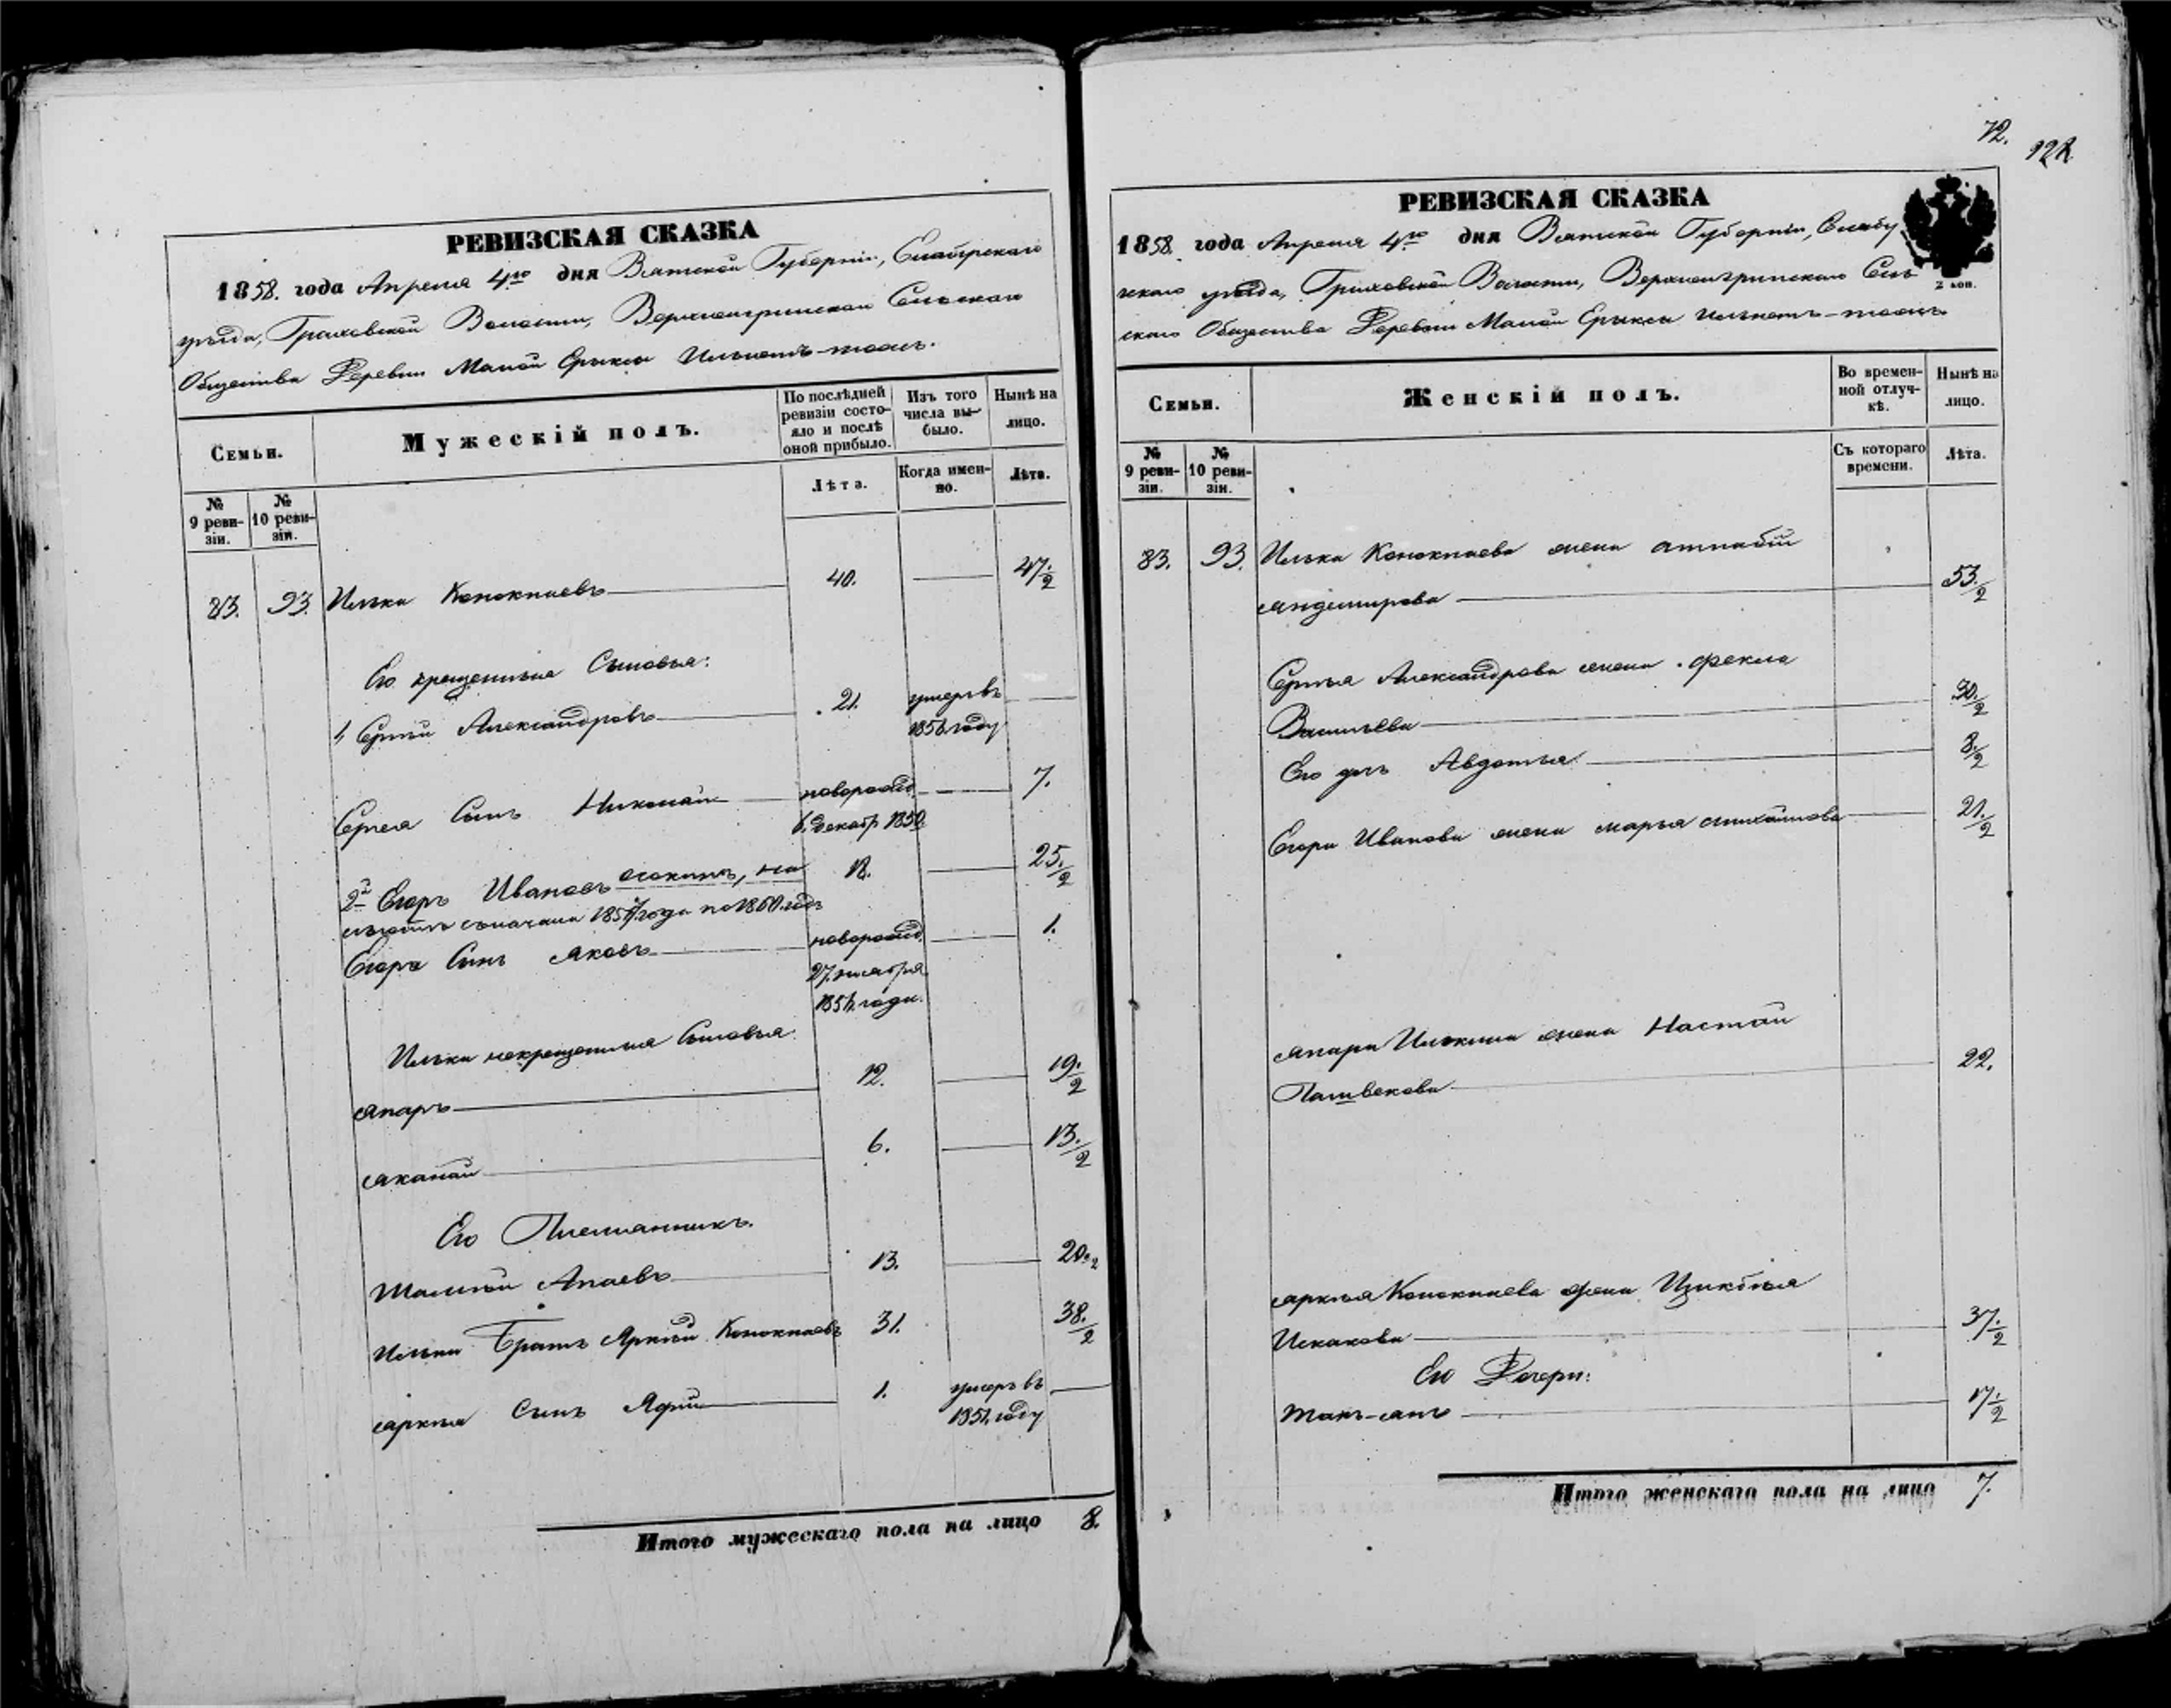 РЕВИЗСКАЯ СКАЗКА
1858. года Апреля 4го дня Вятской Губерніи, Елабугскаго
уѣзда, Граховской Волости, Верхнеигринскаго Сельскаго
Общества Деревни Малой Ерыксы
Семьи.
Мужескій полъ.
По послѣдней ревизіи состояло и послѣ оной прибыло.
Изъ того числа выбыло.
Нынѣ на лицо.
№ 9 ревизіи.
№ 10 ревизіи.
Лѣта.
Когда именно.
Лѣта.
83. 93. Илька Конокпаевъ 40. 47 1/2
Его крещенные Сыновья:
1, Сергѣй Александровъ 21. умеръ въ
1851 году
Сергея Сынъ Николай новорожд. 7.
6. декабр. 1850
2й Егоръ Ивановъ 18. 25 1/2
съ начала 1857 года по 1860 годъ
Егора Сынъ Яковъ новорожд. 1.
27. года.
Ильки некрещенныя Сыновья:
Япаръ 12. 19 1/2
Яканай 6. 13 1/2
Его Племянникъ.
Апаевъ 13. 20 1/2
Ильки Братъ Яркѣй Конокпаевъ 31. 38 1/2
Яркѣя Сынъ 1. умеръ въ
1851. году
Итого мужескаго пола на лицо 8.
72.
РЕВИЗСКАЯ СКАЗКА
1858. года Апреля 4го дня Вятской Губерніи, Елабу
2 коп.
жскаго уѣзда, Граховской Волости, Верхнеигринскаго Сель
скаго Общества Деревни Малой Ерыксы
Семьи.
Женскій полъ.
Во временной отлучкѣ.
Нынѣ на лицо.
№ 9 ревизіи.
№ 10 ревизіи.
Съ котораго времени.
Лѣта.
83. 93. Ильки Конокпаева жена
Яндемирова 53 1/2
Сергѣя Александрова жена Фекла
Васильева 30 1/2
Его дочь Авдотья 8 1/2
Егора Иванова жена Марья Михайлова 21 1/2
Япара Илькина жена Настай
22.
Яркѣя Конокпаева жена
Искакова 37 1/2
Его Дочери:
17 1/2
Итого женскаго пола на лицо 7.